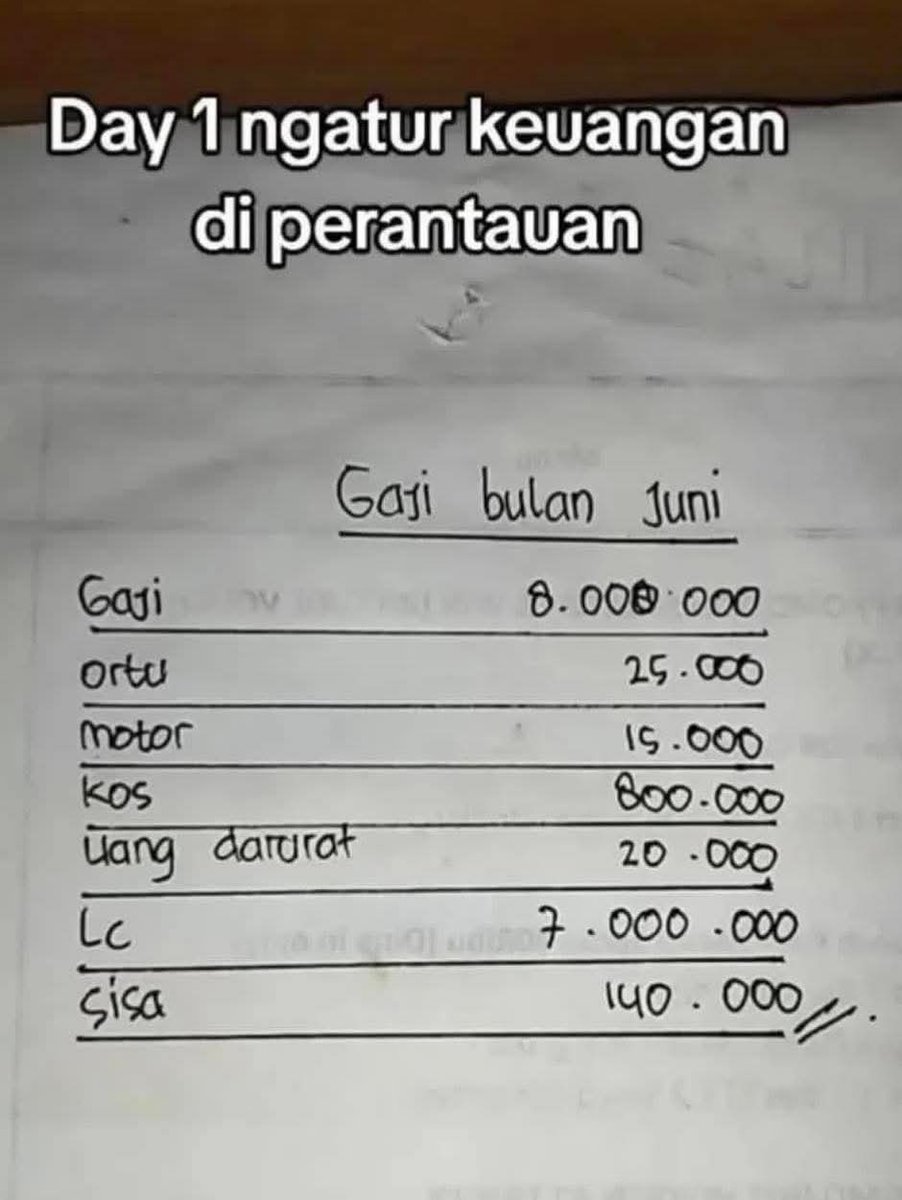 Day 1 ngatur keuangan
di perantauan
Gaji bulan Juni
Gaji 8.000.000
ortu 25.000
motor 15.000
kos 800.000
Uang darurat 20.000
Lc 7.000.000
Sisa 140.000